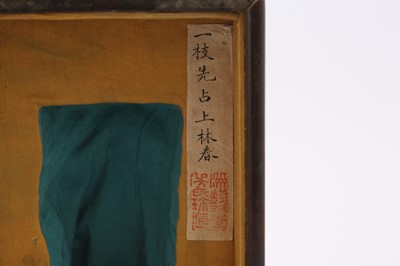 一枝先占上林春